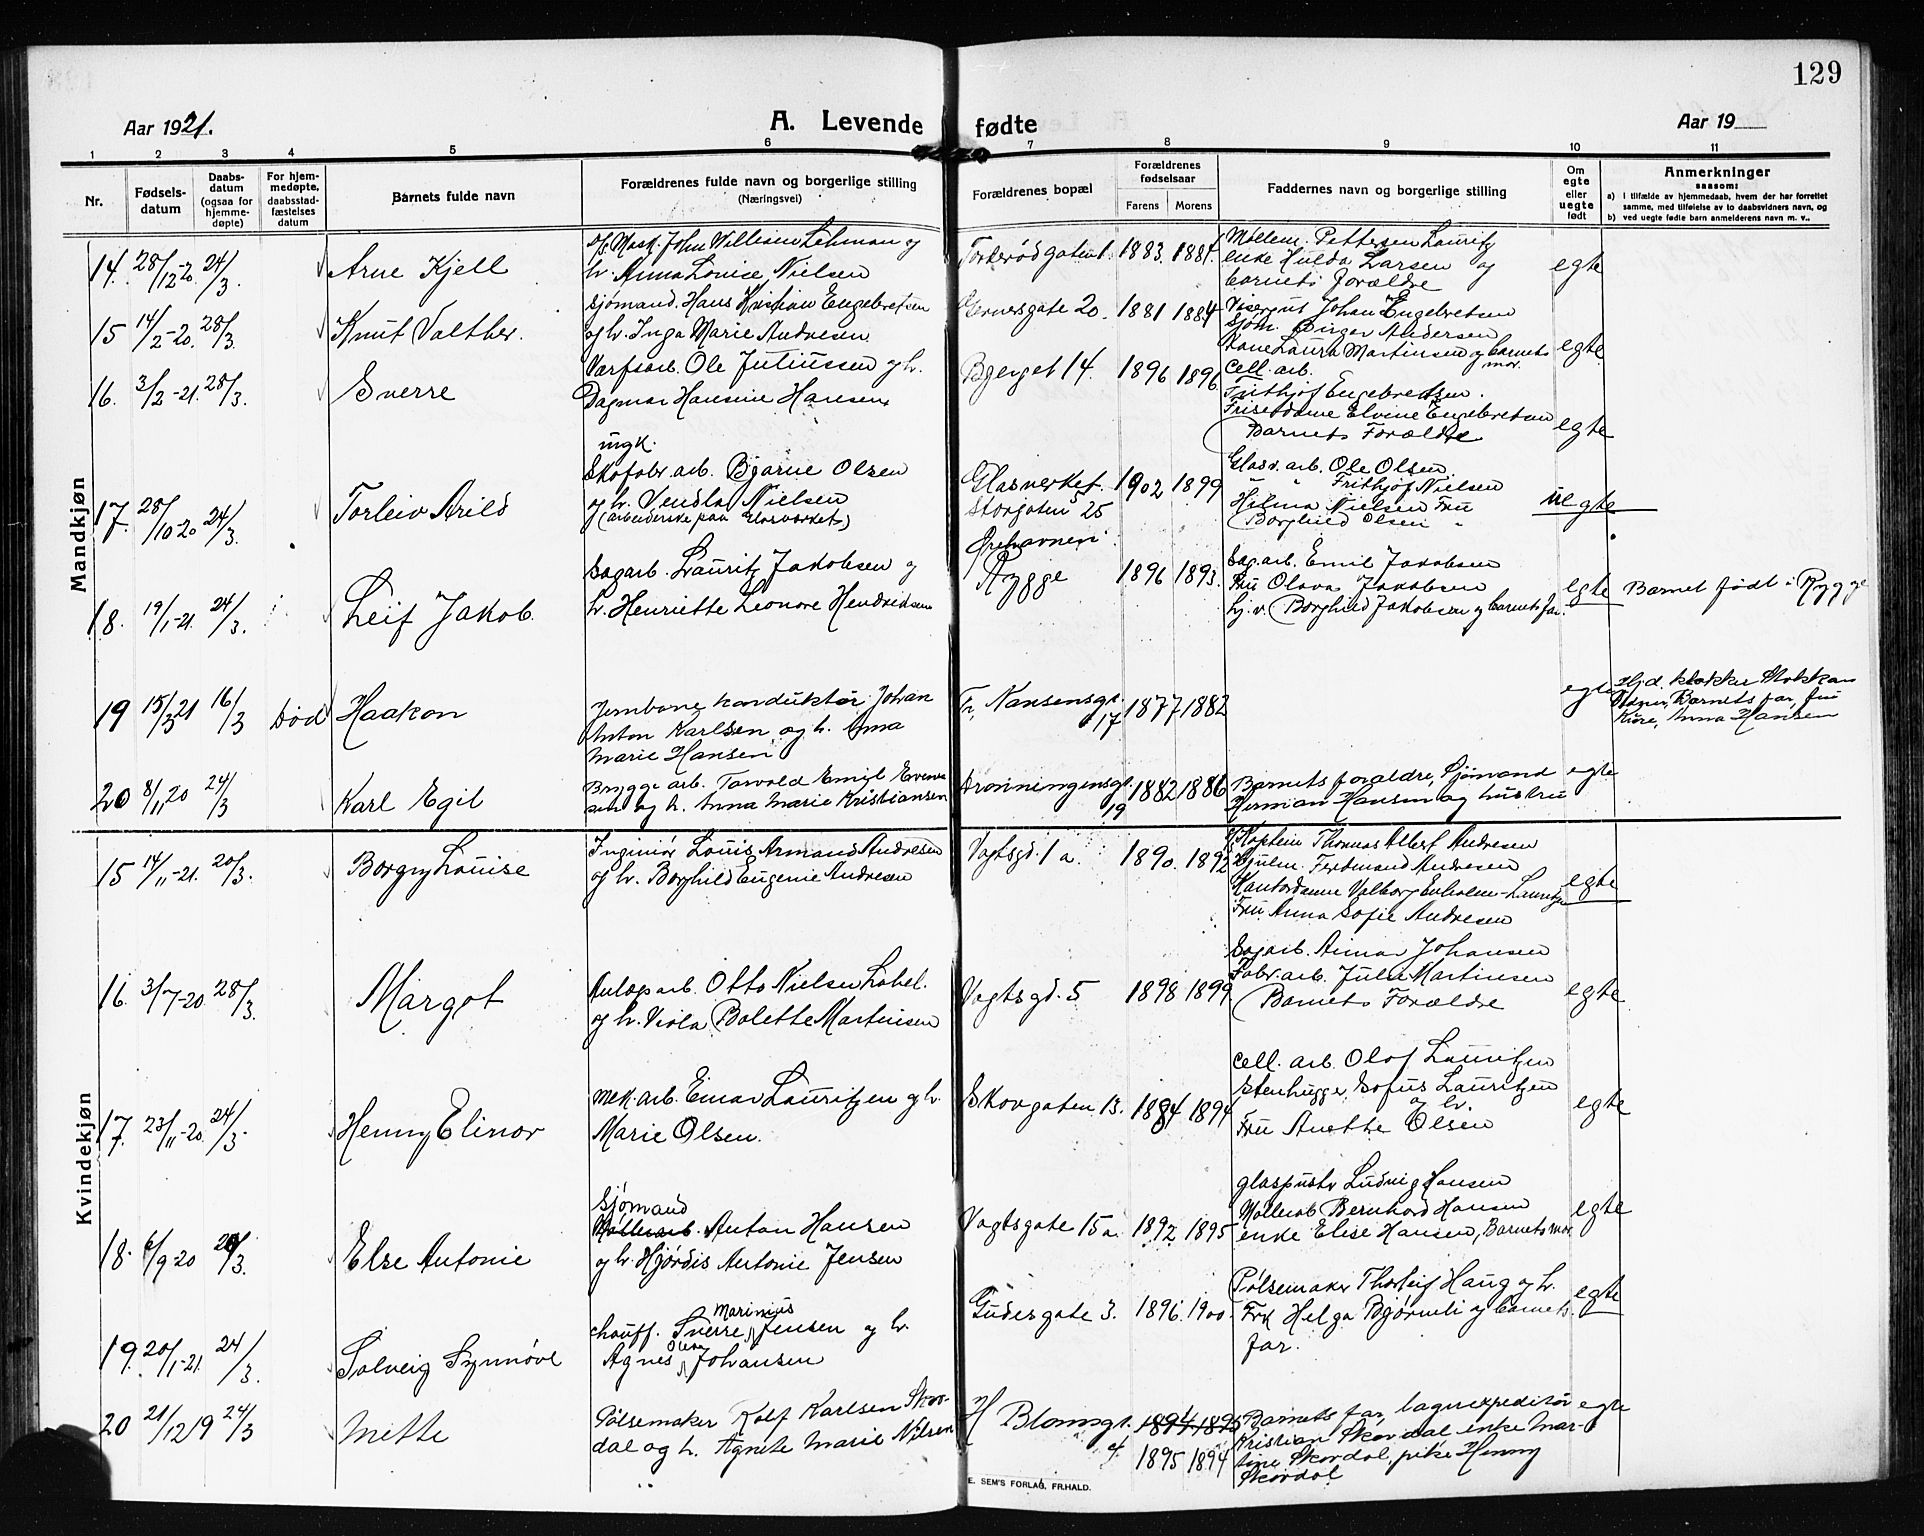 129
Aar 1921.
A. Levende fødte
Aar 19
1 2 3 4 5 6 7 8 9 10 11
Nr.
Fødsels-
datum
Daabs-
datum
(ogsaa for
hjemme-
døpte)
For hjem-
medøpte,
daabsstad-
fæstelses
datum
Barnets fulde navn
Forældrenes fulde navn og borgerlige stilling
(Næringsvei)
Forældrenes bopæl
Forældrenes
fødselsaar
Farens Morens
Faddernes navn og borgerlige stilling
Om
egte
eller
uegte
født
Anmerkninger
saasom:
a) I tilfælde av hjemmedaab, hvem der har forrettet
samme, med tilføielse av to daabsvidners navn, og
b) ved uegte fødte barn anmelderens navn m. v.,
Mandkjøn
14. 28/12-20 24/3. Arne Kjell
Mask. John William Lehman og
h. Anna Louise Nielsen
Torderødgaten 1. 1883. 1881.
Møllem. Pettersen Lauritz
enke Hulda Larsen og
barnets forældre
egte
15 14/2-20. 28/3. Knut Valther.
Sjømand. Hans Kristian Engebretsen
og h. Inga Marie Andresen
Gernersgate 20. 1881 1884
Visergut Johan Engebretsen
Sjøm. Birger Andersen
Kone Laura Martinsen og barnets
mor.
egte
16. 3/2-21. 28/3. Sverre
Værfsarb. Ole Juliussen og h.
Dagmar Hansine Hansen
Bjerget 14. 1896 1896
Cell. arb.
Frithjof Engebretsen.
Frisørdame Elvine Engebretsen
Barnets Forældre
egte
17. 28/10-20 24/3. Torleiv Arild
ungk.
Skofabr. arb. Bjarne Olsen
og h. Vendla Nielsen
(arbeiderske paa Glasverket)
Glasverket. 1902 1899
Storgaten 25
Glasv. arb. Ole Olsen
" " Frithjof Nielsen
Hilma Nielsen Fru
Borghild Olsen "
uegte
18. 19/1-21. 24/3. Leif Jakob.
Sagarb. Lauritz Jakobsen og
h. Henriette Leonore Hendriksen
Ørehavnen.
Rygge 1896 1893.
Sag. arb. Emil Jakobsen
Fru Olava Jakobsen
hj. v. Borghild Jakobsen og barnets far.
egte
Barnet født i Rygge
19 15/3 21 16/3 Død Haakon
Jernbane konduktør Johan
Anton Karlsen og h. Anna
Marie Hansen
Fr. Nansensgt.
17 1877 1882
egte
Hj.d. klokker Stokkan
Vidner, Barnets far, fru
Anna Hansen
20 8/11 20 24/3 Karl Egil
Brygge arb. Torvald Emil Evens-
sen og h. Anna Marie Kristiansen
Dronningensgt.
19 1882 1886
Barnets forældre, Sjømand
Herman Hansen og hustru
egte
Kvindekjøn
15 14/11-21. 20/3. Borgny Louise
Ingeniør Louis Armand Andresen
og h. Borghild Eugenie Andresen
Vogtsgd. 1 a. 1890. 1892
Kaptein Thomas Albert Andresen
Hjulm. Ferdinand Andresen
Kontordame Valborg Enholm-Lauritzen
Fru Anna Sofie Andresen
egte
16. 3/7-20. 28/3. Margot
Anlægsarb. Otto Nielsen Løbel.
og h. Viola Bolette Martinsen
Vogtsgd. 5 1898 1899
Sagarb. Einar Johansen
Fabr. arb. Julie Martinsen
Barnets Forældre
egte
17. 23/11-20. 24/3. Henny Elinor
Mek. arb. Einar Lauritzen og h.
Marie Olsen.
Skovgaten 13. 1884 1894
Cell. arb. Olof Lauritzen
Stenhugger Sofus Lauritzen
og h.
Fru Anette Olsen
egte
18. 6/9-20 28/3. Else Antonie
Sjømand
Møllearb. Anton Hansen
og h. Hjørdis Antonie Jensen
Vogtsgate 15 a. 1892 1895
glaspuster Ludvig Hansen
Møllearb. Bernhard Hansen
enke Elise Hansen, Barnets mor
egte
19. 20/1-21. 24/3. Solveig Synnøve
Marinius
chauff. Sverre Jensen og h.
Olava
Agnes Johansen
Gudesgate 3. 1896. 1900.
Pølsemaker Thorleif Haug og h.
Frk Helga Bjørneli og barnets
far.
egte
20 21/12 19 24/3 Mette
Pølsemaker Rolf Karlsen Skov-
dal og h. Agnete Marie Nilsen
H Blomsgt. 1894 1895
4. 1895 1894
Barnets far, lagerexpeditør
Kristian Skovdal, enke Mar-
tine Skovdal, pike Henny
Skovdal
egte
E. SEM'S FORLAG, FR.HALD.